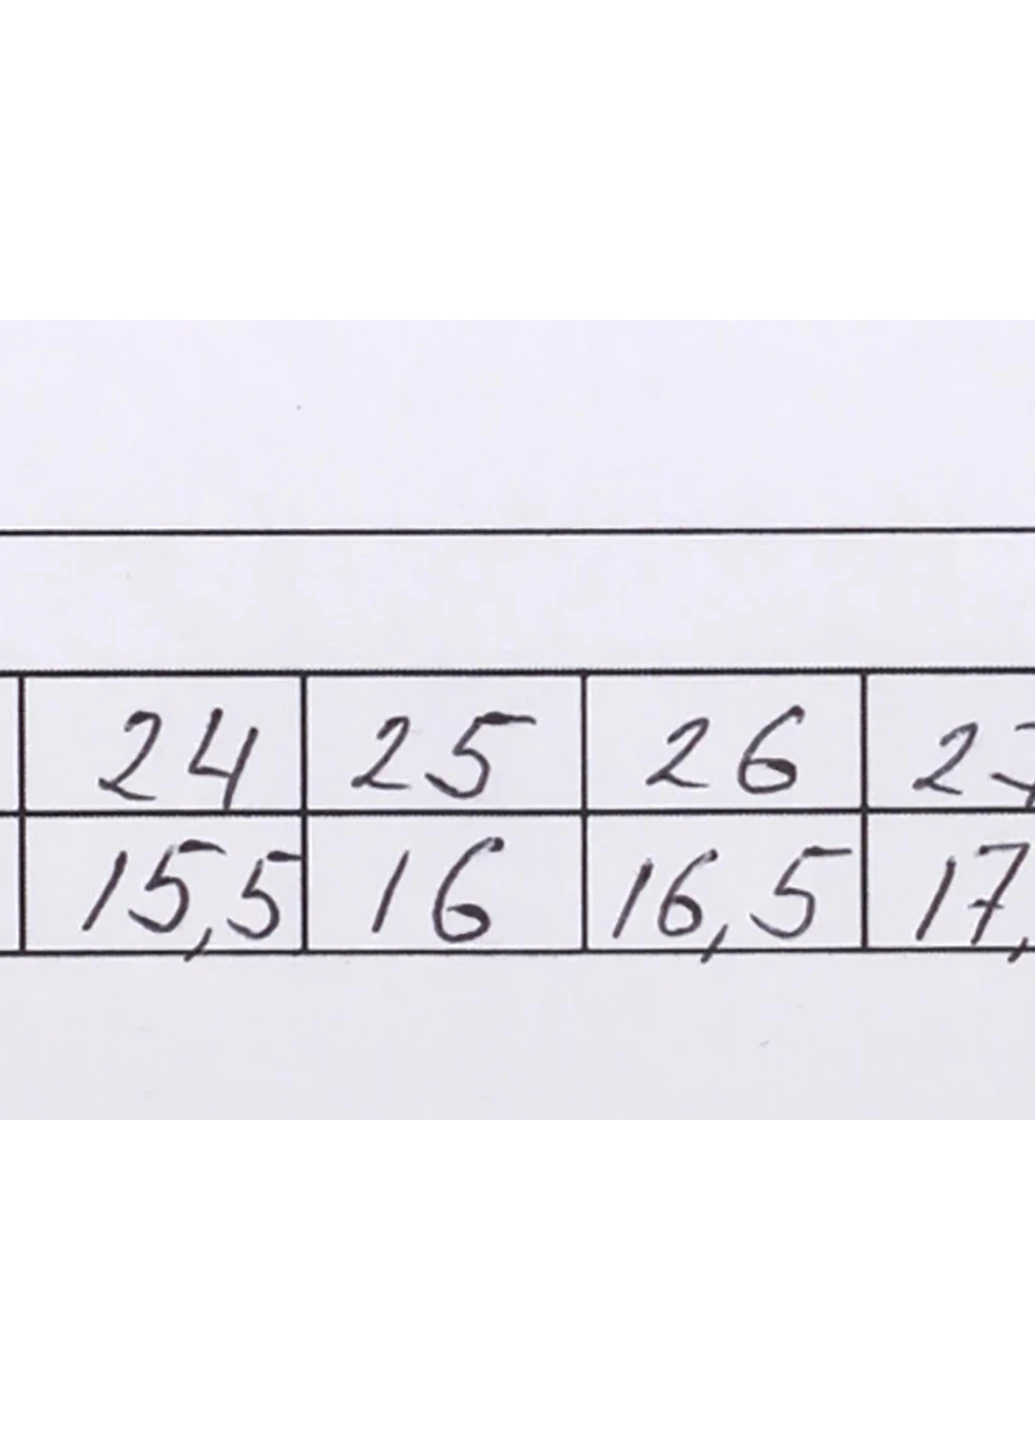 24 25 26 27
15,5 16 16,5 17,